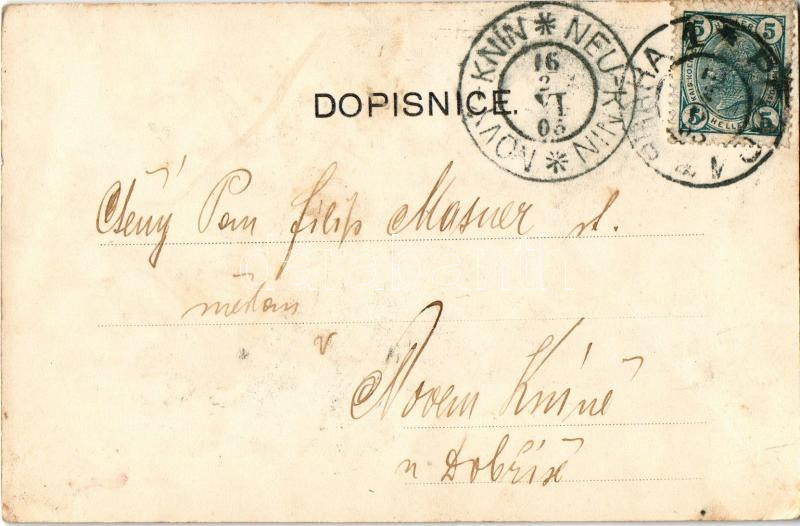 DOPISNICE.
NOVÝ KNÍN * NEU-KNIN *
16
VI
05
5 HELLER 5
Ctěný Pan Filip Masner st.
měšťan
v
Novem Kníně
u Dobříše
darabanth